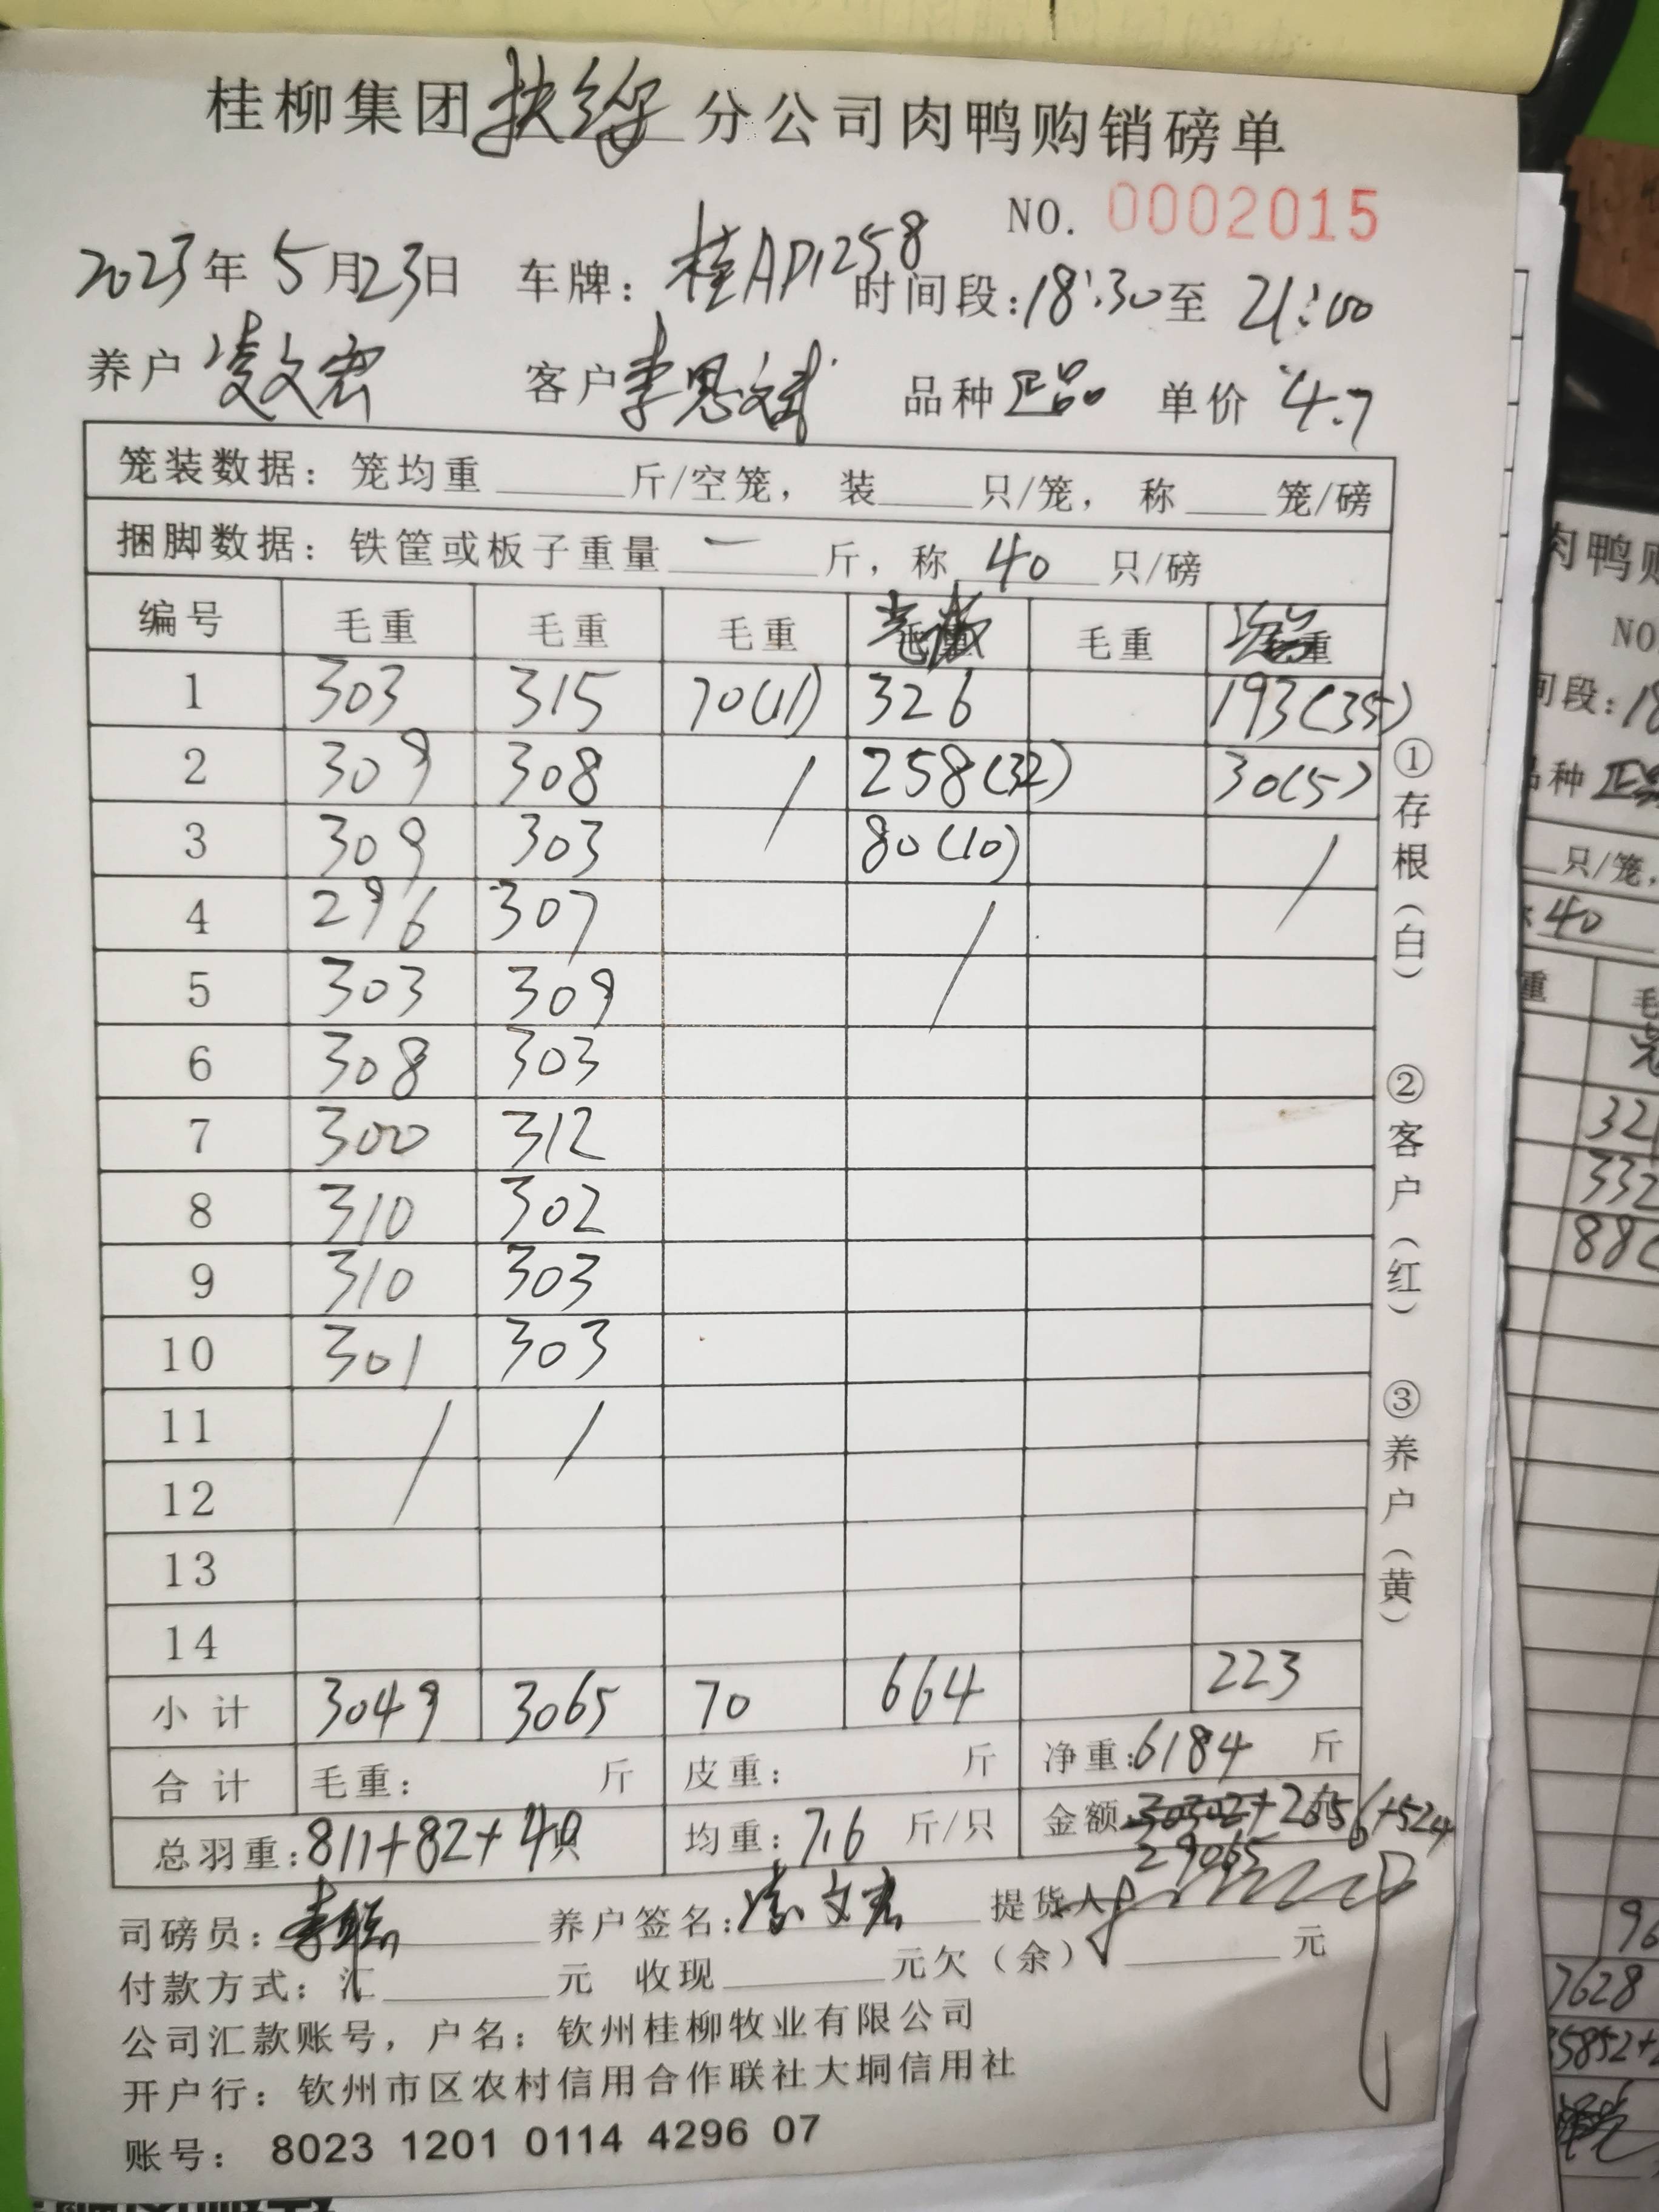 桂柳集团扶绥分公司肉鸭购销磅单
NO. 0002015
2023年5月23日 车牌：桂AD1258 时间段：18:30至 21:00
养户 凌文宏 客户 李恩斌 品种 正品 单价 4.7
笼装数据：笼均重 斤/空笼，装 只/笼，称 笼/磅
捆脚数据：铁筐或板子重量 一 斤，称 40 只/磅
编号 毛重 毛重 毛重 毛重
1 303 315 70(11) 326 193(35)
2 309 308 / 258(32) 30(5)
3 309 303 80(10) /
4 296 307 /
5 303 309
6 308 303
7 300 312
8 310 302
9 310 303
10 301 303
11 / /
12
13
14
小计 3049 3065 70 664 223
合计 毛重： 斤 皮重： 斤 净重：6184 斤
总羽重：811+82+40只 均重：7.6 斤/只 金额 30302+2656+524
29065
司磅员： 养户签名：凌文宏 提货人
付款方式：汇 元 收现 元欠（余） 元
公司汇款账号，户名：钦州桂柳牧业有限公司
开户行：钦州市区农村信用合作联社大垌信用社
账号：8023 1201 0114 4296 07
①存根（白）
②客户（红）
③养户（黄）
肉鸭购
NO
只/笼
40
332
88
96
7628
35852+